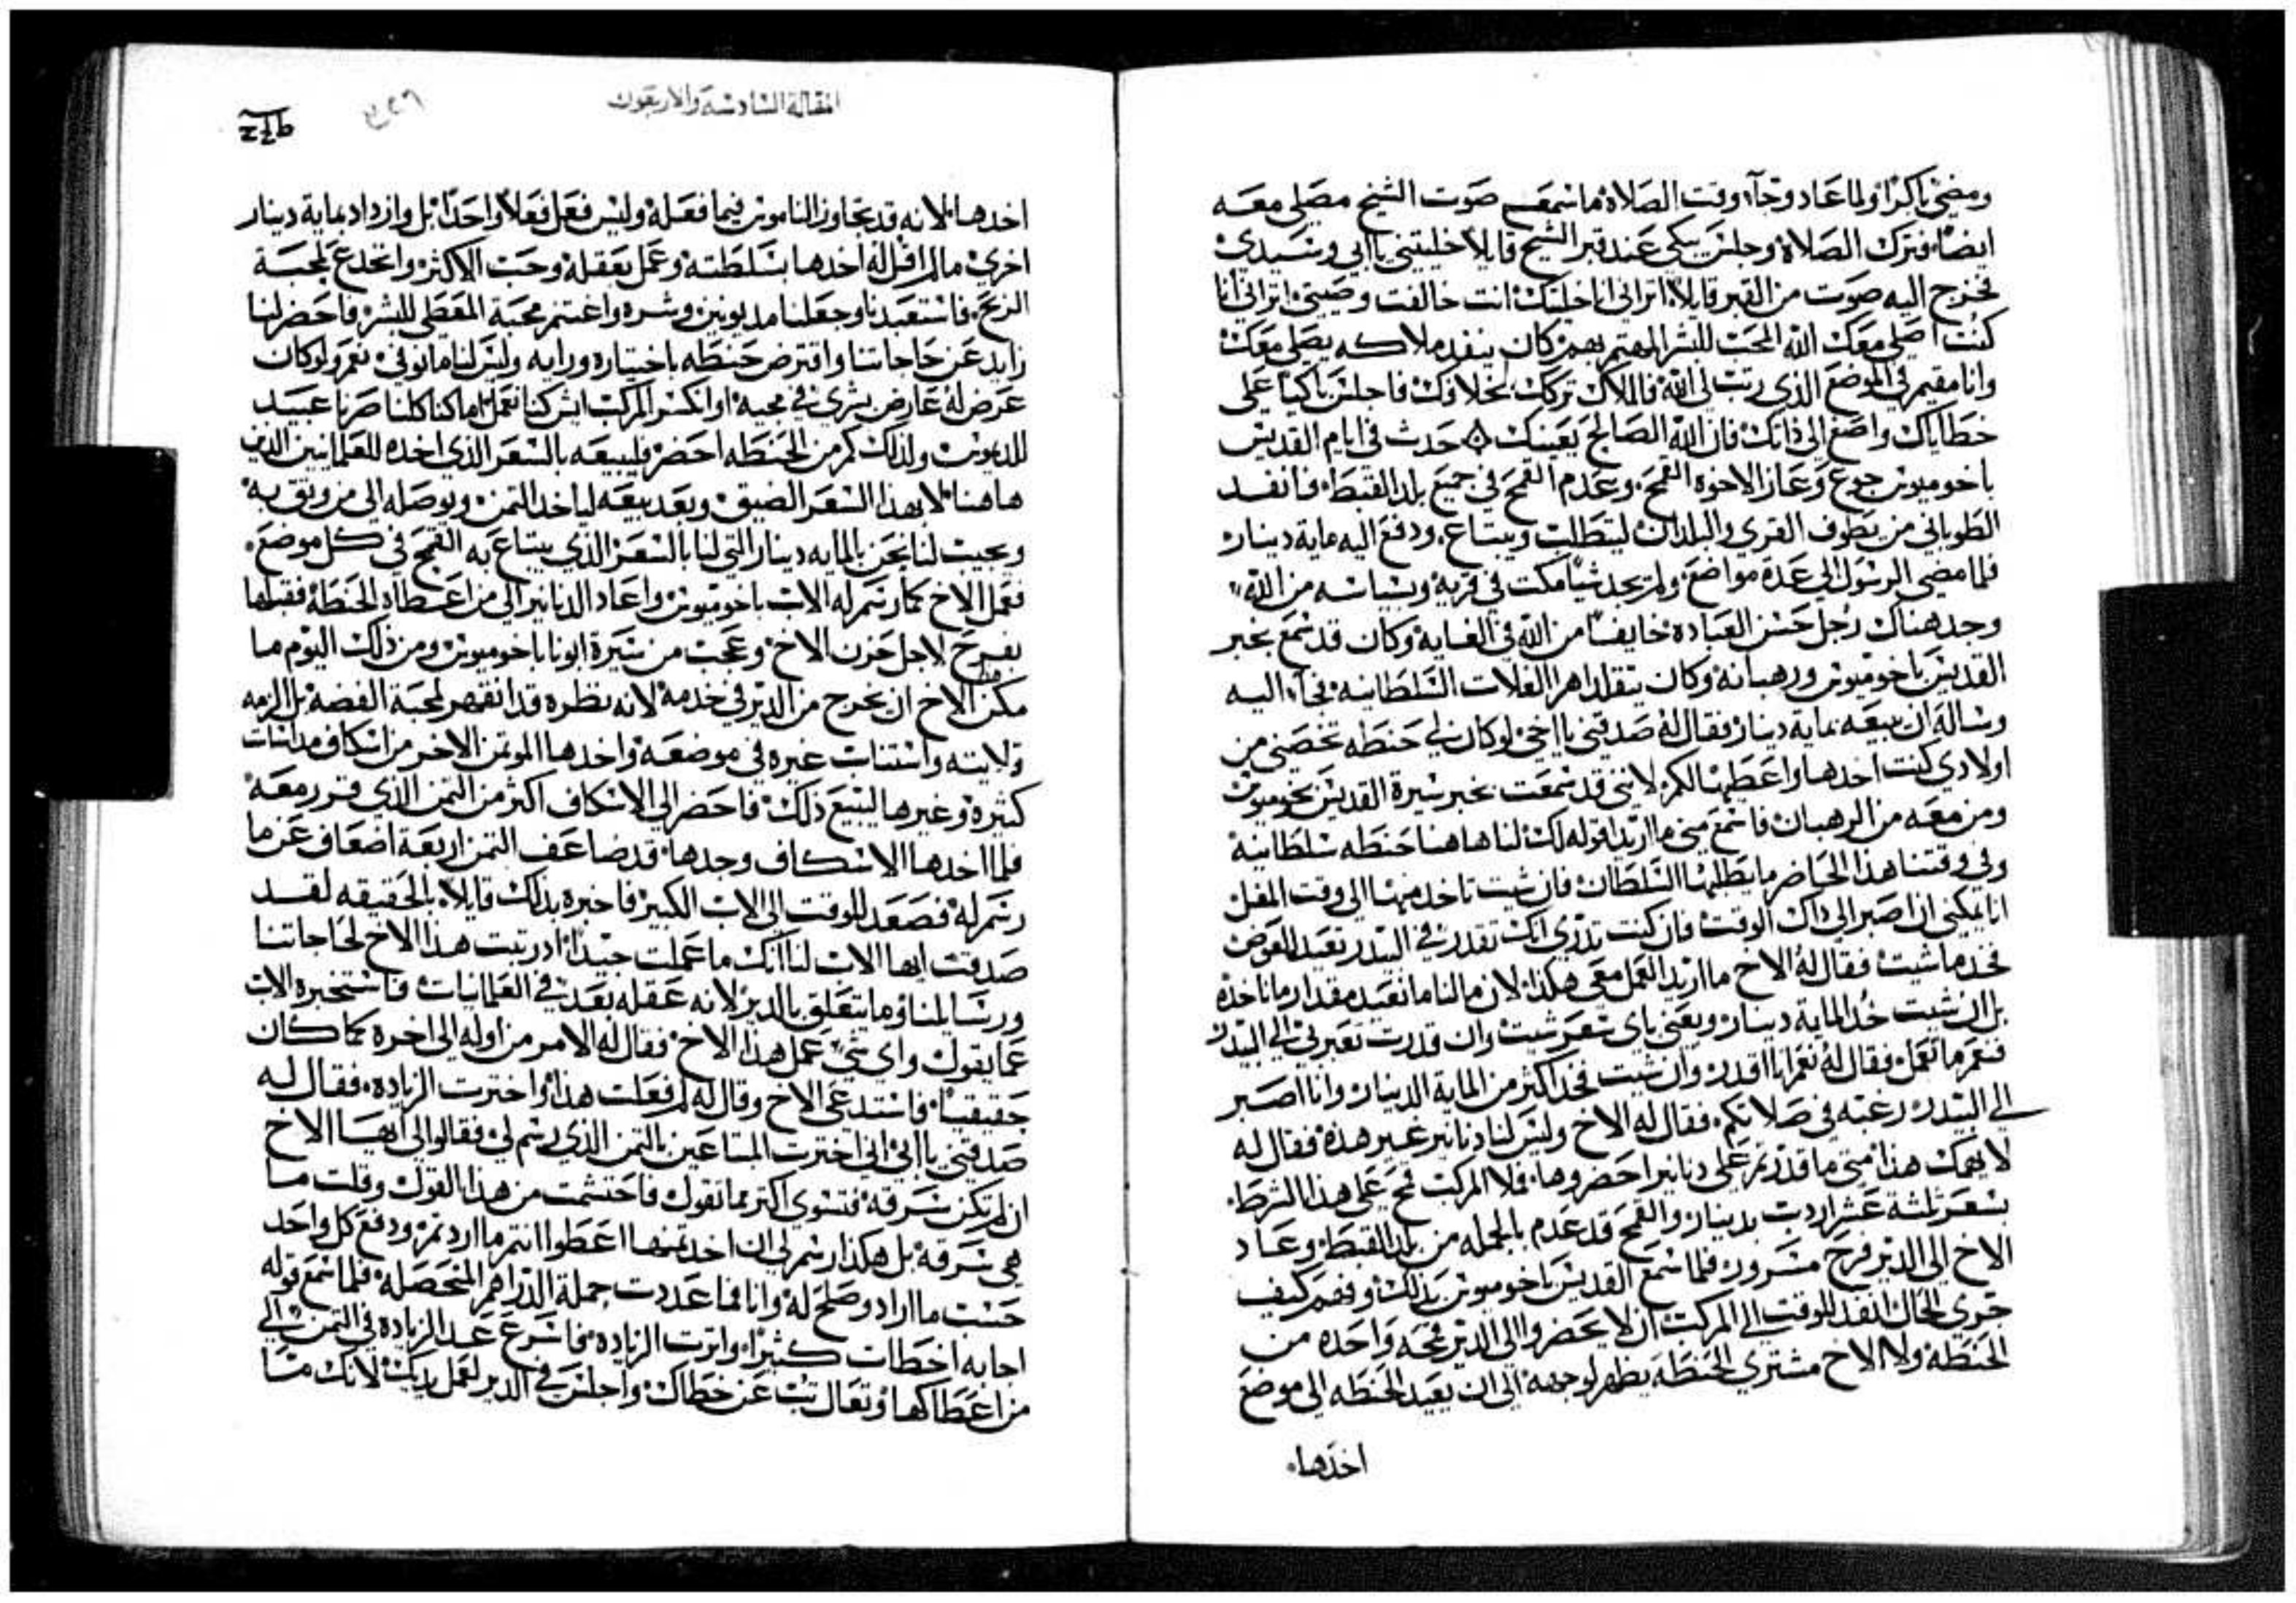 ومضي باكرًا ولما عاد وجآء وقت الصلاة ما سمع صوت الشيخ مصلي معه
ايضًا فترك الصلاة وجلس يبكي عند قبر الشيخ قايلاً خليتني يا ابي وسيدي
فخرج اليه صوت من القبر قايلاً اتراني انا خليتك انت خالفت وصيتي اتراني انا
كنت اصلي معك الله المحب للبشر المهتم بهم كان ينفد ملاكه يصلي معك
وانا مقيم في الموضع الذي رتب لي الله فالملاك تركك لخلافك فاجلس باكيًا علي
خطاياك واصغ الي ذاتك فان الله الصالح يعينك حدث في ايام القديس
باخوميوس جوع وعاز الاخوه القمح وعدم القمح في جميع بلد القبط فانفد
الطوباني من يطوف القري والبلدان ليتطلب ويبتاع ودفع اليه ماية دينار
فلما مضي الرسول الي عدة مواضع ولم يجد شيًا مكت في قرية وبسياسه من الله
وجد هناك رجل حسن العباده خايفًا من الله في الغايه وكان قد سمع بخبر
القديس باخوميوس ورهبانه وكان يتقلد اهرا الغلات السلطانيه فجآء اليه
وساله ان يبيعه بماية دينار فقال له صدقني يا اخي لو كان لي حنطه تخصني من
اولادي كنت اخدها واعطيها لكم لانني قد سمعت بخبر سيرة القديس بخوميوس
ومن معه من الرهبان فاسمع مني ما اريد اقوله لك لنا هاهنا حنطه سلطانية
وفي وقتنا هذا الحاضر ما يطلبها السلطان فان شيت تاخد منها الي وقت المغل
انا يمكنني ان اصبر الي داك الوقت فان كنت تدري انك تقدر في البيدر تعيد العوض
فخد ما شيت فقال له الاخ ما اريد العمل معي هكذا لان ما لنا ما نعيد مقدار ما ناخذه
بل ان شيت خد الماية دينار وبعني باي سعر شيت وان قدرت تعبر بي الي البيدر
فنعم ما تعمل فقال له نعم انا اقدر وان شيت فخد اكثر من الماية الدينار وانا اصبر
الي البيدر رغبه في صلاتكم فقال له الاخ وليس لنا دنانير غير هذه فقال له
لا يهمك هذا متي ما قدرتم علي دنانير احضروها فملا المركب قمح علي هذا الشرط
بسعر ثلثة عشر اردب بدينار والقمح قد عدم بالجمله من بلد القبط وعاد
الاخ الي الدير فرح مسرور فلما سمع القديس باخوميوس بذلك وفهم كيف
جري الحال انفد للوقت الي المركب ان لا يحضروا الي الدير قمحه واحده من
الحنطة ولا الاخ مشتري الحنطة يظهر لوجهه الي ان يعيد الحنطه الي موضع
اخدها
المقالة السادسه والاربعون
اخدها لانه قد تجاوز الناموس فيما فعله وليس فعل فعلاً واحدًا بل وازداد بماية دينار
اخري ما لم اقل له اخدها بسلطته وعمل بعقله وحب الاكثر وانخدع لمحبة
الربح فاستعبدنا وجعلنا مديونين وشره واغتنم محبة المعطي للبشر فاحضر لنا
زايد عن حاجاتنا واقترض حنطه باختياره ورايه وليس لنا ما نوفي نعم ولو كان
عرض له عارض بشري في مجيه او انكسر المركب ايش كنا نعمل اما كنا كلنا صرنا عبيد
للديون ولذلك كم من الحنطه احضر فليبيعه بالسعر الذي اخده للعلمانيين الدين
هاهنا لا بهذا السعر الضيق وبعد بيعه لياخد الثمن ويوصله الي من وتق به
ويجيب لنا نحن بالمايه دينار التي لنا بالسعر الذي يبتاع به القمح في كل موضع
فعمل الاخ كما رسم له الاب باخوميوس واعاد الدنانير الي من اعطاه الحنطة فقبلها
بفرح لاجل حزن الاخ وعجب من سيرة ابونا باخوميوس ومن ذلك اليوم ما
مكن الاخ ان يخرج من الدير في خدمة لانه نظره قد انقهر لمحبة الفضه بل الزمه
قلايته واستناب غيره في موضعه واخدها الموتمن الاخر من اسكاف مداسات
كثيره وغيرها ليبيع ذلك فاحضر الي الاسكاف اكثر من التمن الذي قرر معه
فلما اخدها الاسكاف وجدها قد ضاعف التمن اربعة اضعاف عن ما
رسم له فصعد للوقت الي الاب الكبير فاخبره بذلك قايلاً بالحقيقه لقد
صدقت ايها الاب لنا انك ما عملت جيدًا اد رتبت هذا الاخ لحاجاتنا
ورسايلنا وما يتعلق بالدير لانه عقله بعد في العلمانيات فاستخبره الاب
عما يقول واي شي عمل هذا الاخ فقال له الامر من اوله الي اخره كما كان
حقيقيًا فاستدعي الاخ وقال له لم فعلت هذا واخترت الزياده فقال له
صدقني يا ابي اني اخترت المبتاعين بالتمن الذي رسم لي فقالوا لي ايها الاخ
ان لم تكن سرقة فتسوي اكتر مما تقول فاحتشمت من هذا القول وقلت ما
هي سرقة بل هكذا رسم لي ان اخد تمنها اعطوا انتم ما اردتم ودفع كل واحد
حسب ما اراد وصلح له وانا فما عددت جملة الدراهم المتحصلة فلما سمع قوله
اجابه اخطات كثيرًا واثرت الزياده فاسرع عد الزياده في التمن الي
من اعطاكها وتعال تب عن خطاك واجلس في الدير لعمل يديك لانك ما